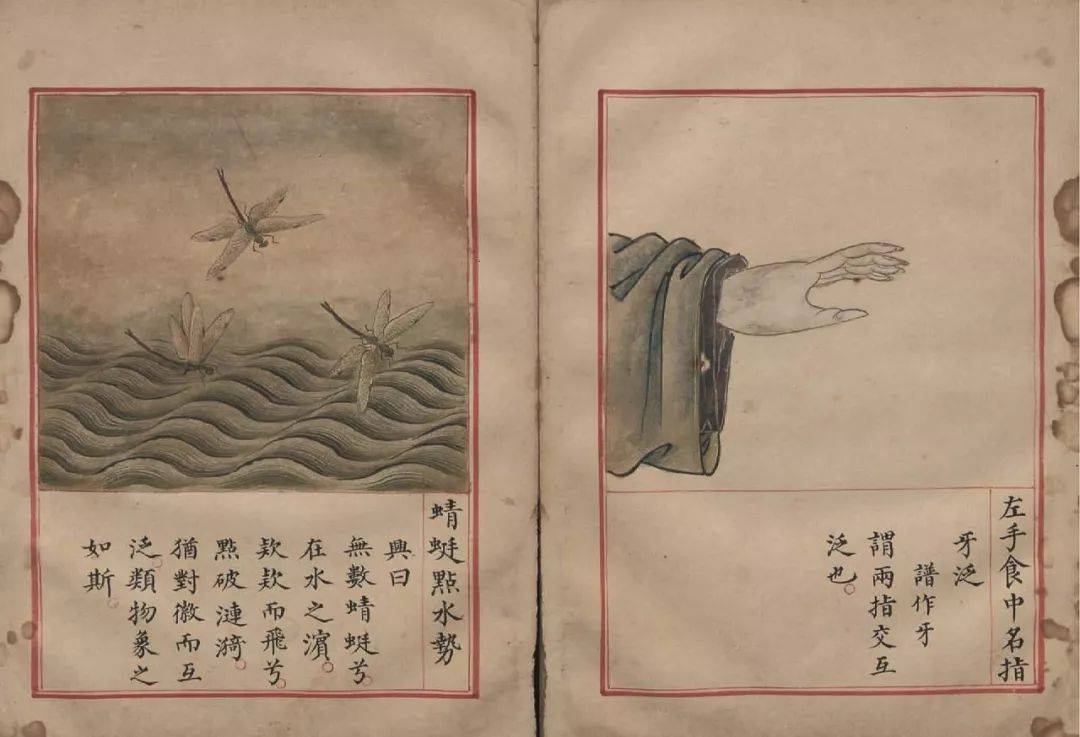 左手食中名指
牙泛
譜作牙
謂兩指交互
泛也。
蜻蜓點水勢
興曰
無數蜻蜓兮。
在水之濱。
欵欵而飛兮。
點破漣漪。
猶對徽而互
泛。類物象之
如斯。